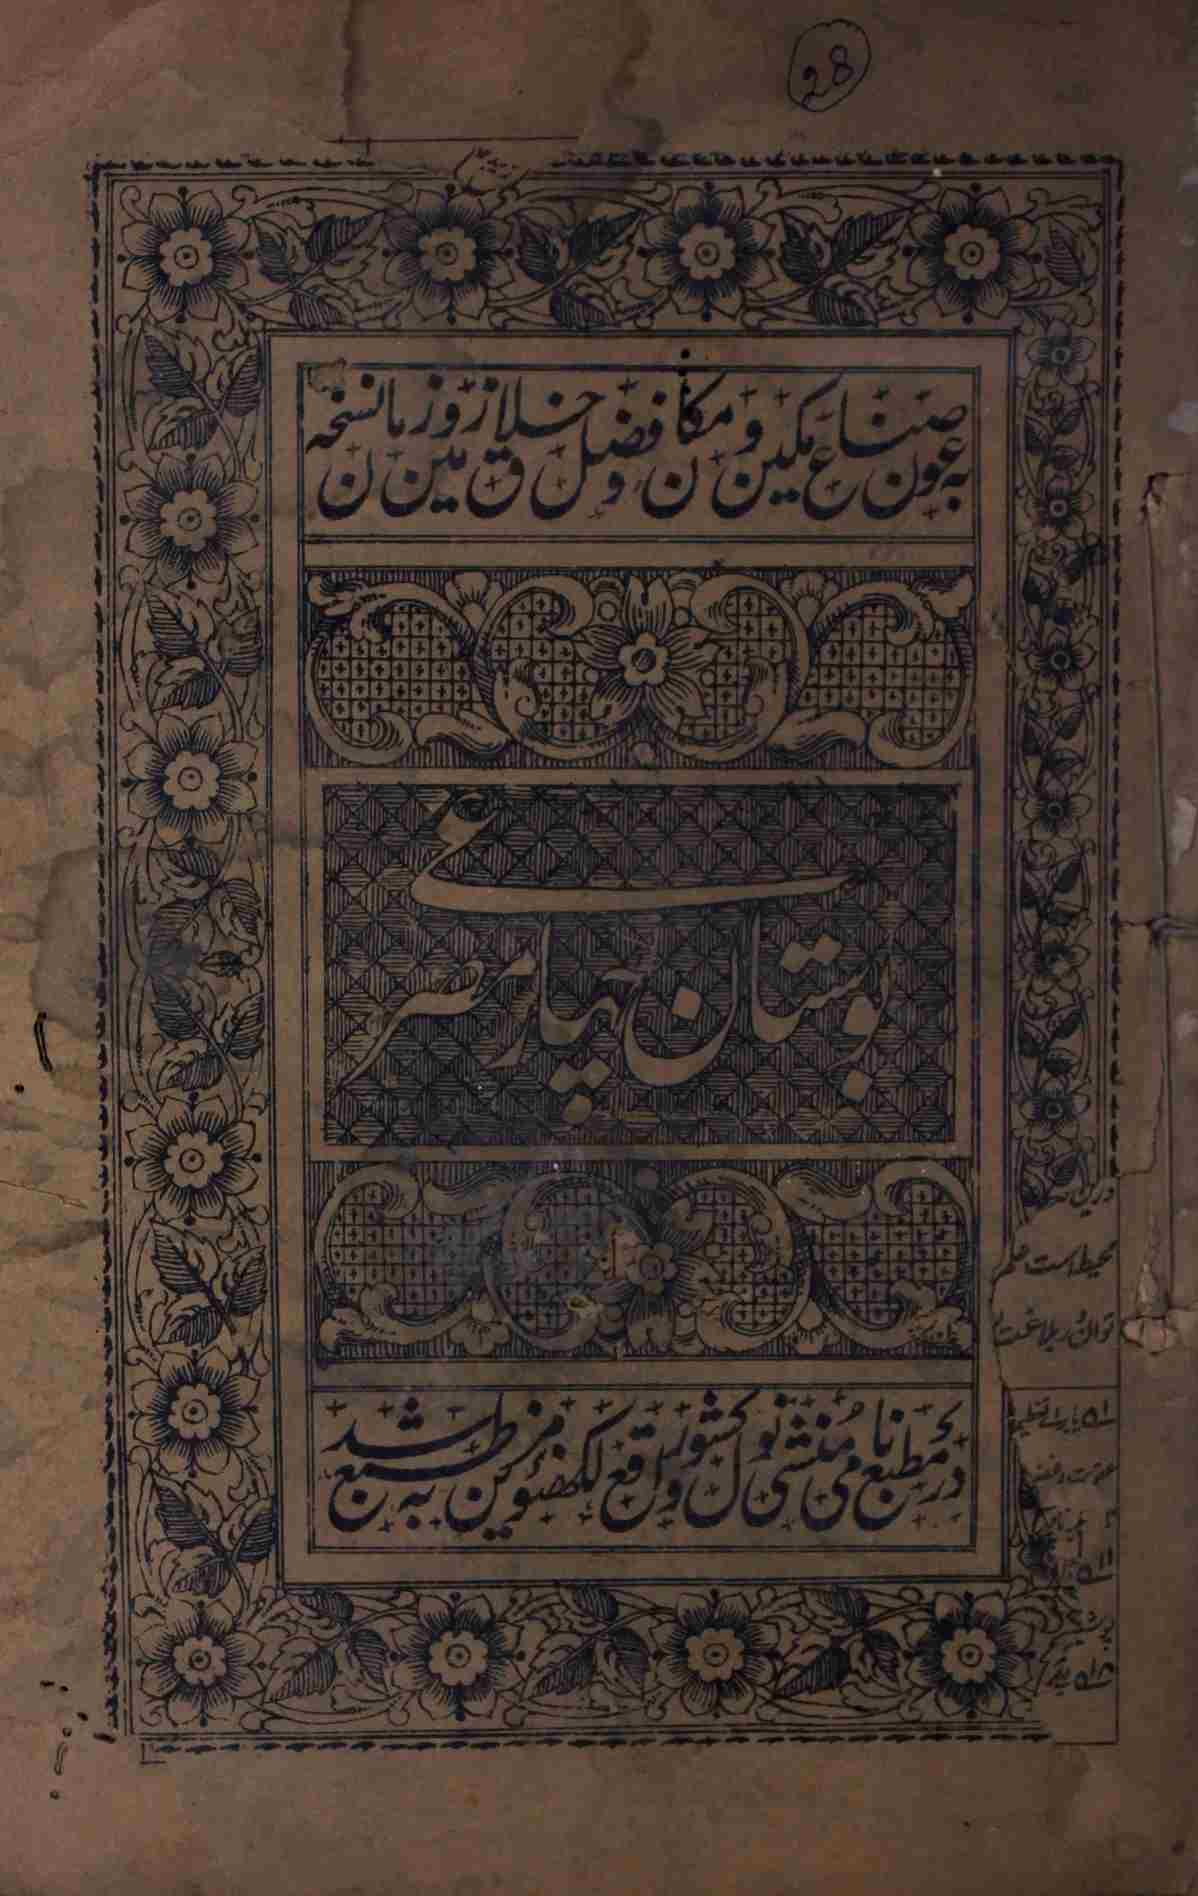 28
به عون صناع مکین و مکان و فضل خلاق زمین و زمان نسخه
بوستان چهار مصرعے
در مطبع نامی منشی نولکشور واقع لکھنؤ مزین به طبع شد
محیط است